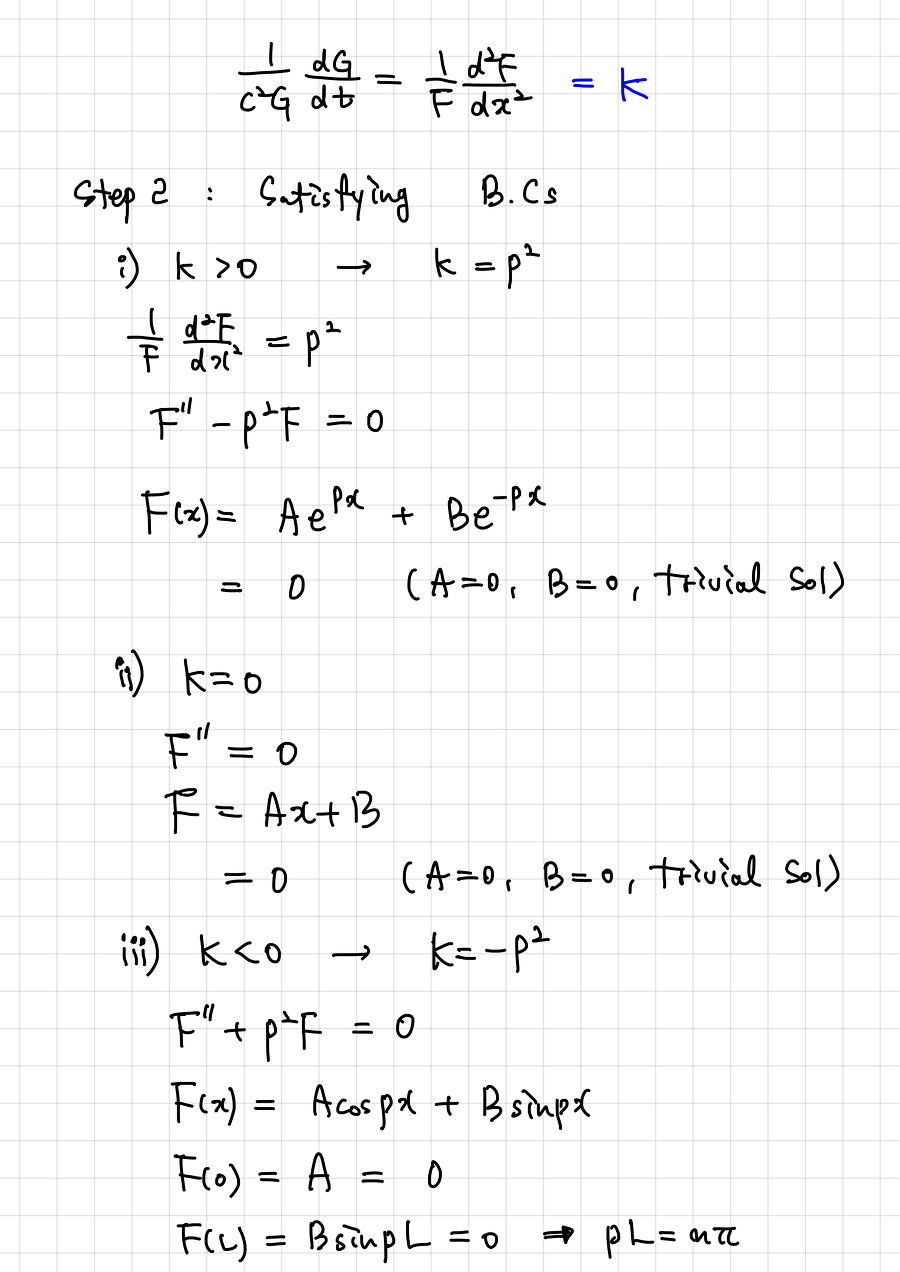 1/(c²G) dG/dt = 1/F d²F/dx² = k
Step 2 : Satisfying B.Cs
i) k > 0 → k = p²
1/F d²F/dx² = p²
F'' - p²F = 0
F(x) = Ae^{px} + Be^{-px}
= 0 (A=0, B=0, trivial sol)
ii) k=0
F'' = 0
F = Ax+B
= 0 (A=0, B=0, trivial sol)
iii) k<0 → k=-p²
F'' + p²F = 0
F(x) = A cos px + B sin px
F(0) = A = 0
F(L) = B sin pL = 0 ⇒ pL = nπ